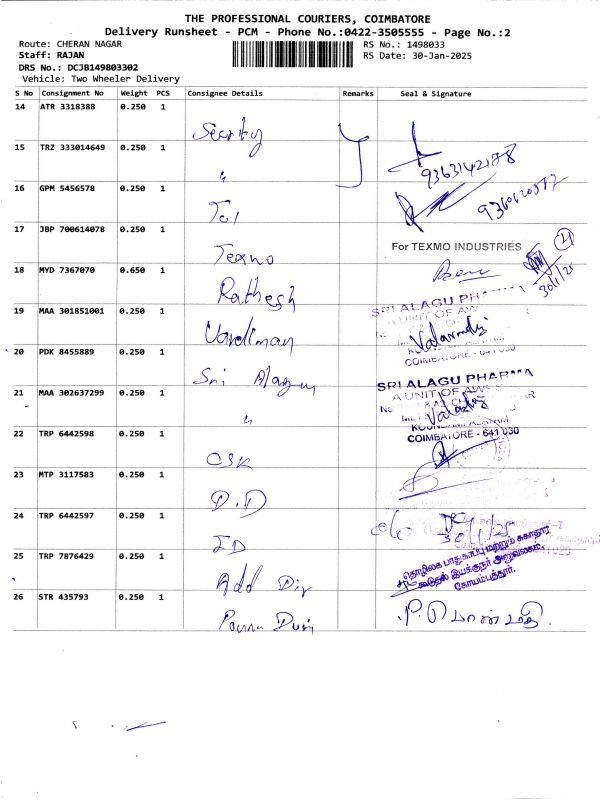 THE PROFESSIONAL COURIERS, COIMBATORE
Delivery Runsheet - PCM - Phone No.:0422-3505555 - Page No.:2
Route: CHERAN NAGAR RS No.: 1498033
Staff: RAJAN RS Date: 30-Jan-2025
DRS No.: DCJB149803302
Vehicle: Two Wheeler Delivery
S No Consignment No Weight PCS Consignee Details Remarks Seal & Signature
14 ATR 3318388 0.250 1
15 TRZ 333014649 0.250 1
"
9363142178
16 GPM 5456578 0.250 1
17 JBP 700614078 0.250 1
Texmo
For TEXMO INDUSTRIES
18 MYD 7367070 0.650 1
Rathesh
30/1/25
19 MAA 301851001 0.250 1
SRI ALAGU PHARMA
A UNIT OF
COIMBATORE - 641 030
20 PDK 8455889 0.250 1
Sri Alagu
SRI ALAGU PHARMA
A UNIT OF
21 MAA 302637299 0.250 1
"
COIMBATORE - 641 030
22 TRP 6442598 0.250 1
CSK
23 MTP 3117583 0.250 1
D.D
24 TRP 6442597 0.250 1
30/1/25
ID
தொழிலக பாதுகாப்பு மற்றும் சுகாதார
கூடுதல் இயக்குநர் அலுவலகம்,
கோயம்புத்தூர்.
25 TRP 7876429 0.250 1
Add Dir
26 STR 435793 0.250 1